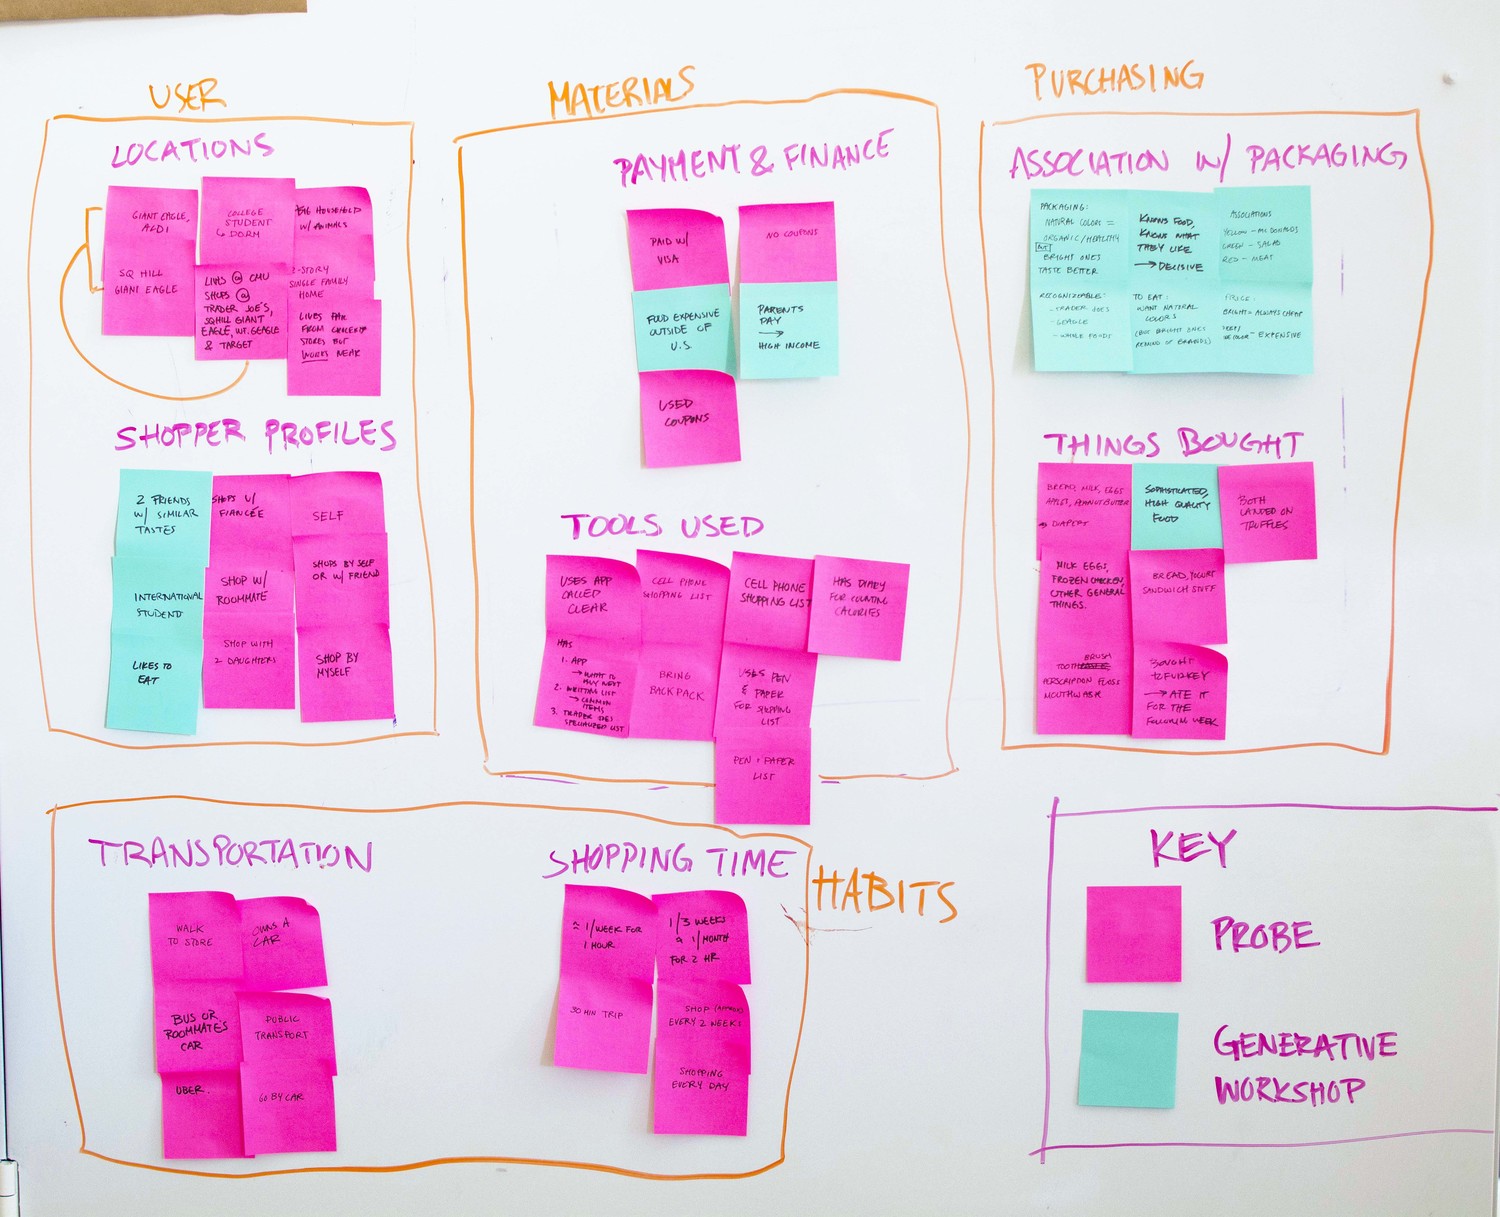 USER
LOCATIONS
GIANT EAGLE,
ALDI
SQ HILL
GIANT EAGLE
COLLEGE
STUDENT
↳ DORM
LIVES @ CMU
SHOPS @
TRADER JOE'S,
SQHILL GIANT
EAGLE, WT. GEAGLE
& TARGET
HOUSEHOLD
W/ ANIMALS
2-STORY
SINGLE FAMILY
HOME
LIVES FAR
FROM
STORES BUT
WORKS NEAR
SHOPPER PROFILES
2 FRIENDS
W/ SIMILAR
TASTES
INTERNATIONAL
STUDENT
LIKES TO
EAT
SHOPS W/
FIANCÉE
SHOP W/
ROOMMATE
SHOP WITH
2 DAUGHTERS
SELF
SHOPS BY SELF
OR W/ FRIEND
SHOP BY
MYSELF
MATERIALS
PAYMENT & FINANCE
PAID W/
VISA
FOOD EXPENSIVE
OUTSIDE OF
U.S.
USED
COUPONS
NO COUPONS
PARENTS
PAY
→
HIGH INCOME
TOOLS USED
USES APP
CALLED
CLEAR
HAS
1. APP
→ WHAT TO
BUY NEXT
2. WRITTING LIST
→ COMMON
ITEMS
3. TRADER JOES
SPECIALIZED LIST
CELL PHONE
SHOPPING LIST
BRING
BACKPACK
CELL PHONE
SHOPPING LIST
USES PEN
& PAPER
FOR SHOPPING
LIST
PEN + PAPER
LIST
HAS DIARY
FOR COUNTING
CALORIES
PURCHASING
ASSOCIATION W/ PACKAGING
PACKAGING:
NATURAL COLORS =
ORGANIC/HEALTHY
BUT
BRIGHT ONES
TASTE BETTER
RECOGNIZEABLE:
- TRADER JOES
- GEAGLE
- WHOLE FOODS
KNOWS FOOD,
KNOWS WHAT
THEY LIKE
→ DECISIVE
TO EAT:
WANT NATURAL
COLORS
(BUT BRIGHT ONES
REMIND OF BRANDS)
ASSOCIATIONS
YELLOW - MCDONALDS
GREEN - SALAD
RED - MEAT
PRICE:
BRIGHT = ALWAYS CHEAP
DEEP/
COLOR - EXPENSIVE
THINGS BOUGHT
BREAD, MILK, EGGS
APPLES, PEANUT BUTTER
MILK EGGS,
FROZEN CHICKEN,
OTHER GENERAL
THINGS.
BRUSH
TOOTH
PERSCRIPTION FLOSS
MOUTHWASH
SOPHISTICATED,
HIGH QUALITY
FOOD
BREAD, YOGURT
SANDWICH STUFF
BOUGHT
TURKEY
→ ATE IT
FOR THE
FOLLOWIN WEEK
BOTH
LANDED ON
TRUFFLES
TRANSPORTATION
WALK
TO STORE
BUS OR
ROOMMATE'S
CAR
UBER.
OWNS A
CAR
PUBLIC
TRANSPORT
GO BY CAR
SHOPPING TIME
≈ 1/WEEK FOR
1 HOUR
30 MIN TRIP
1/3 WEEKS
≈ 1/MONTH
FOR 2 HR
SHOP (APPROX)
EVERY 2 WEEKS
SHOPPING
EVERY DAY
HABITS
KEY
PROBE
GENERATIVE
WORKSHOP